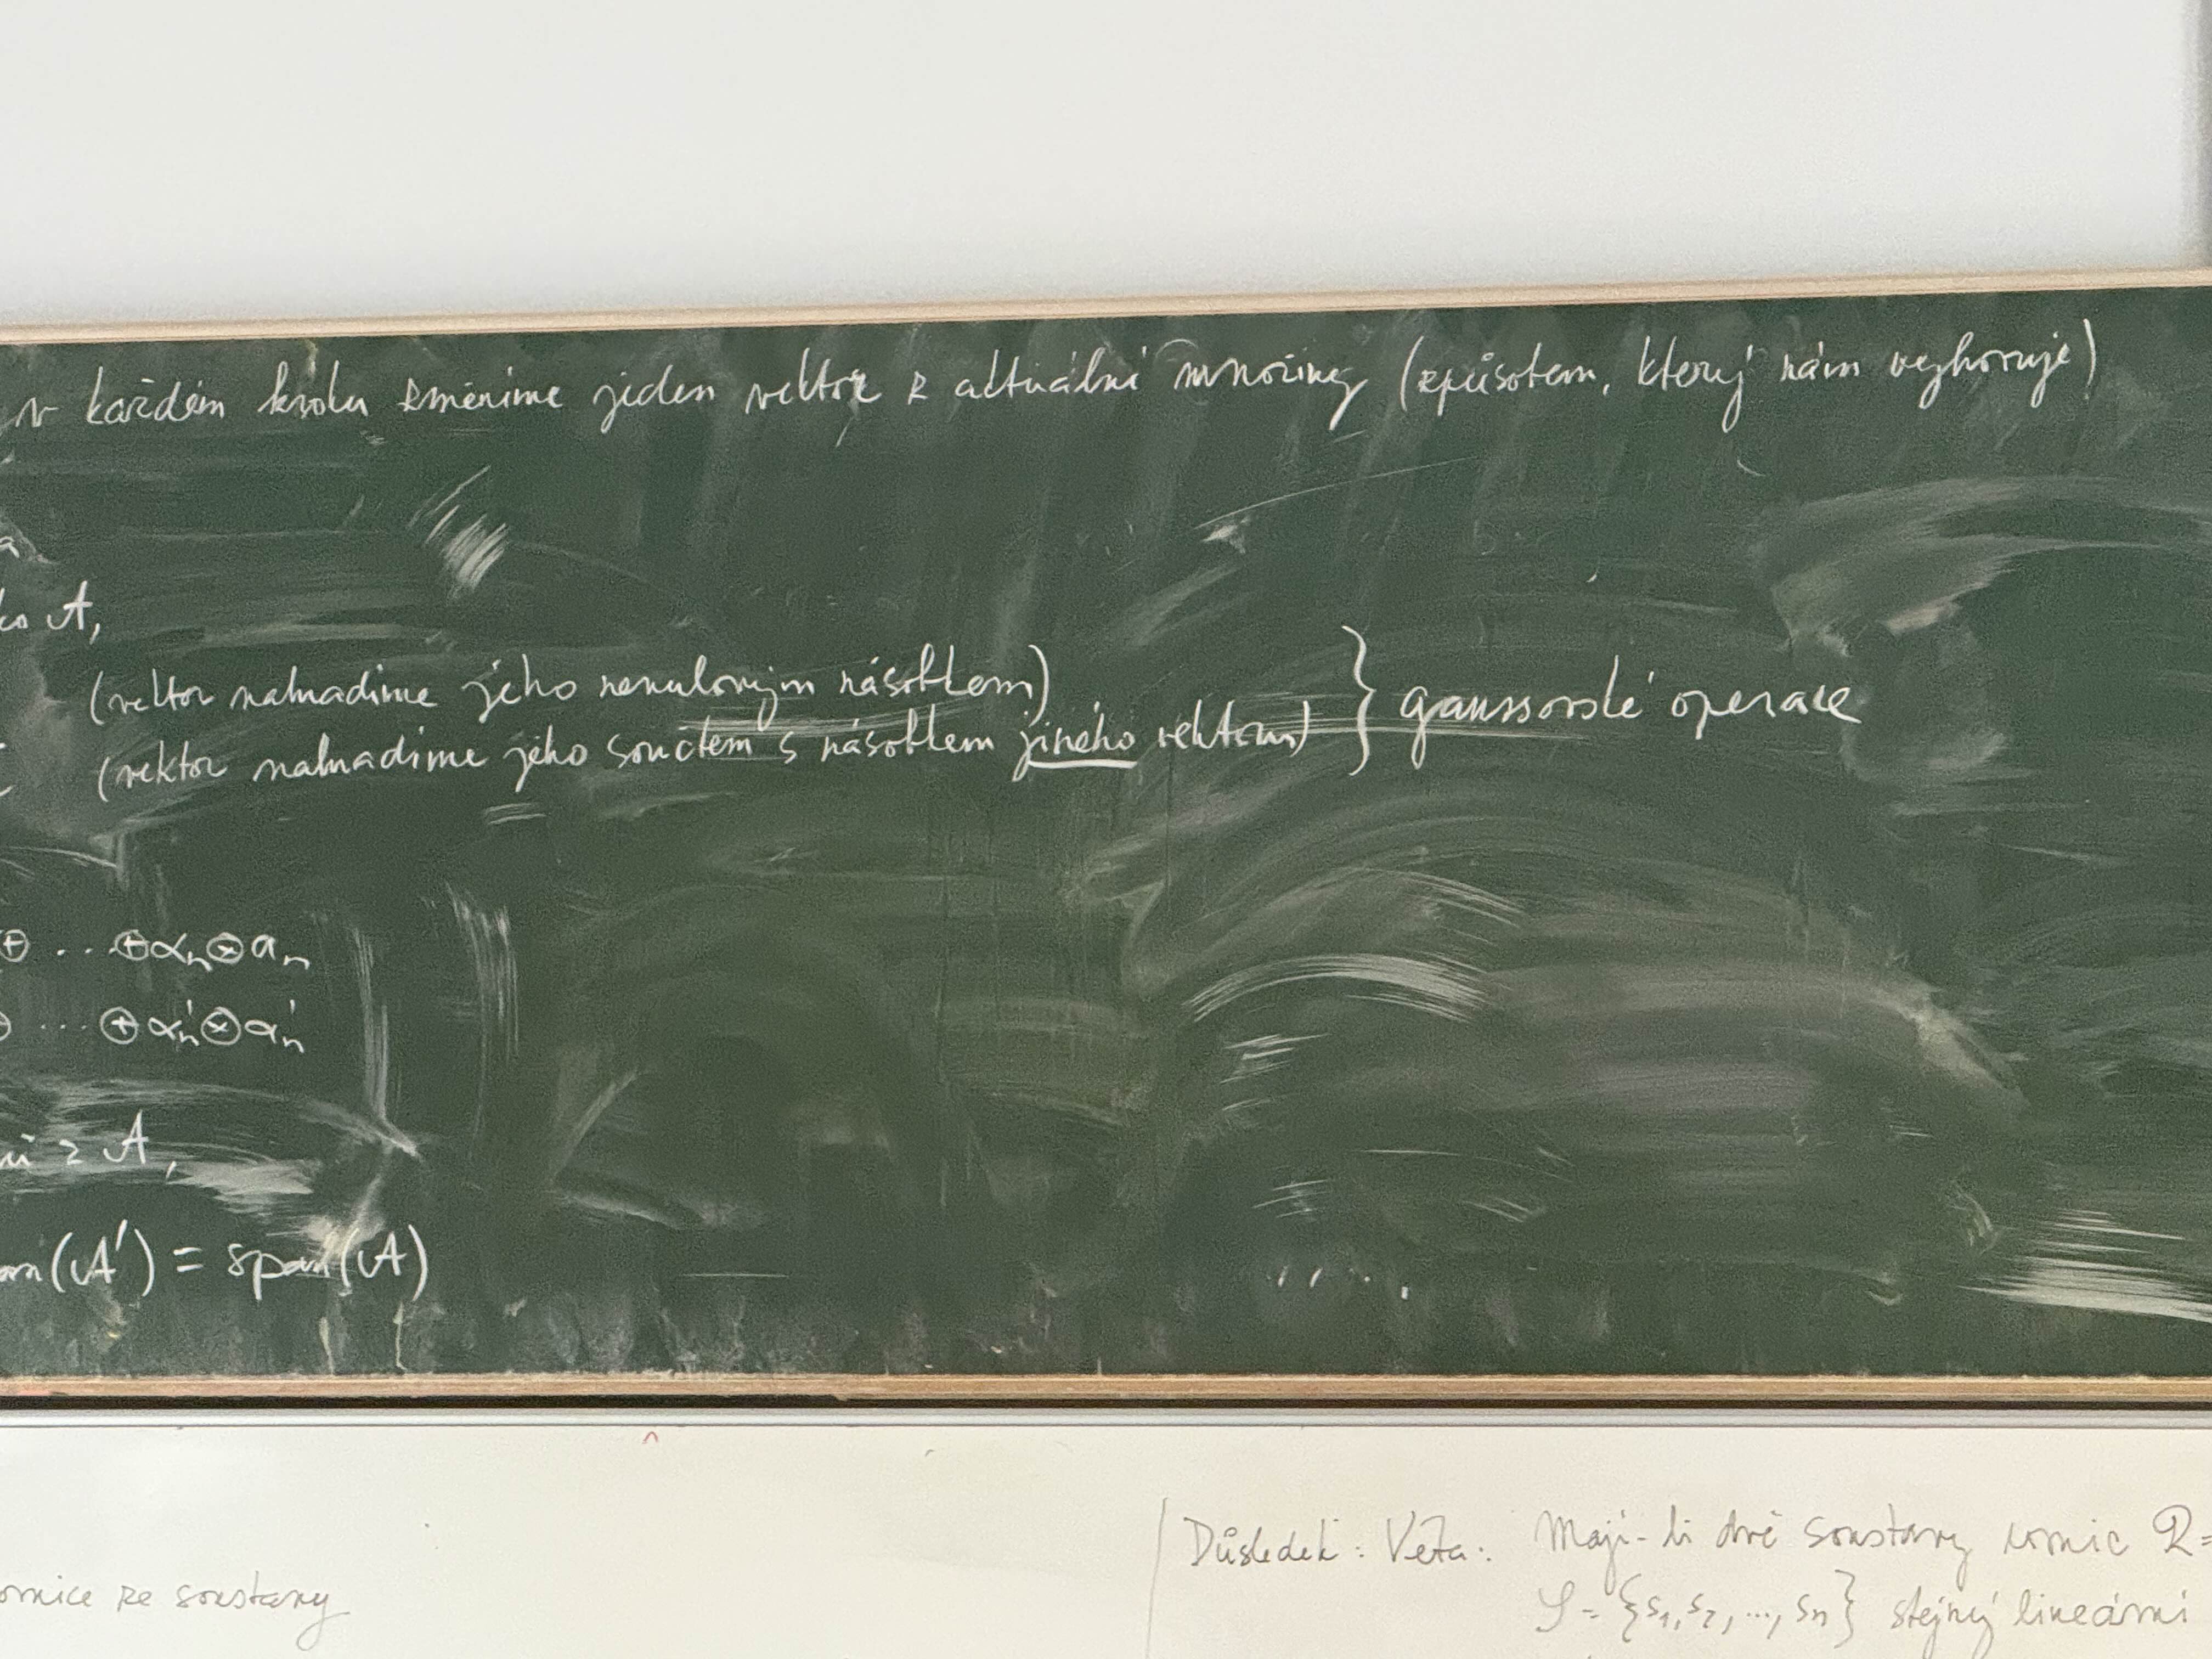 v každém kroku změníme jeden vektor z aktuální množiny (způsobem, který nám vyhovuje)
a
A,
(vektor nahradíme jeho nenulovým násobkem)
(vektor nahradíme jeho součtem s násobkem jiného vektoru)
} gaussovské operace
⊕ ... ⊕ αₙ ⊗ aₙ
... ⊕ α'ₙ ⊗ a'ₙ
z A,
(A') = span(A)
Důsledek: Věta: Mají-li dvě soustavy rovnic R =
S = {s₁, s₂, ..., sₙ} stejný lineární
ovnice ze soustavy